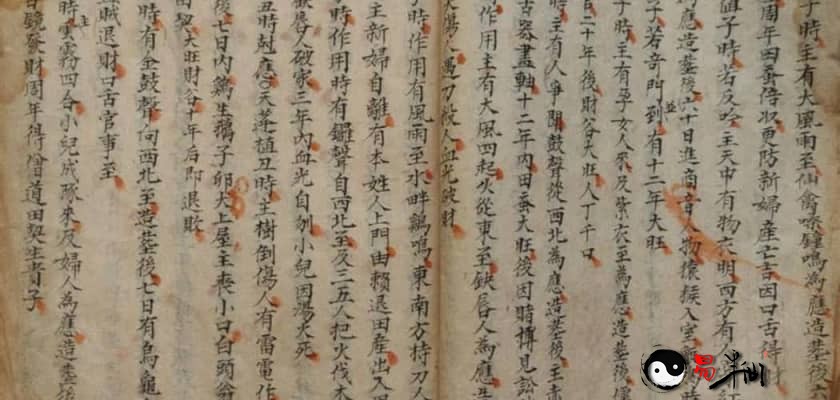 子時主有大風雨至仙禽嘹鐘鳴為應造塟後六
周年田蚕倍収更防新婦產亡吉因口舌得財
值子時若反吟主天中有物衣明西方有人紅
為應造塟後六十日進商音人物猿猴入宅
子若音門到有十二年大旺
子時主有孕女人來及紫衣至為應造塟後
二十年後財谷大旺人丁千口
時主有人爭鬧鼓聲從西北為應造塟後主赤
古器畫軸十二年內田蚕大旺後因賭愽見訟
作用主有大風四起火從東至缺唇人為應造
湯人馬刀殺人血光破財
時作用有風雨至水畔鷄鳴東南方持刀人
主新婦自離有本姓人上門由賴退田產出入
時作用時有鑼聲自西北至及三五人把火伐木
缺唇人破家三年內血光自刎小兒因湯火死
丑時尅應天蓬植丑時主樹倒傷人有雷電作
後七日內鷄生鵝子卯犬上屋主喪小口白頭翁
田契大旺財谷十年后即退敗
時有金鼓聲向西北至造塟後七日有烏龜
盜賊退財口舌官事至
時雲霧四合小兒成隊來及婦人為應造塟後
鏡發財周年得僧道田契生貴子
易半仙